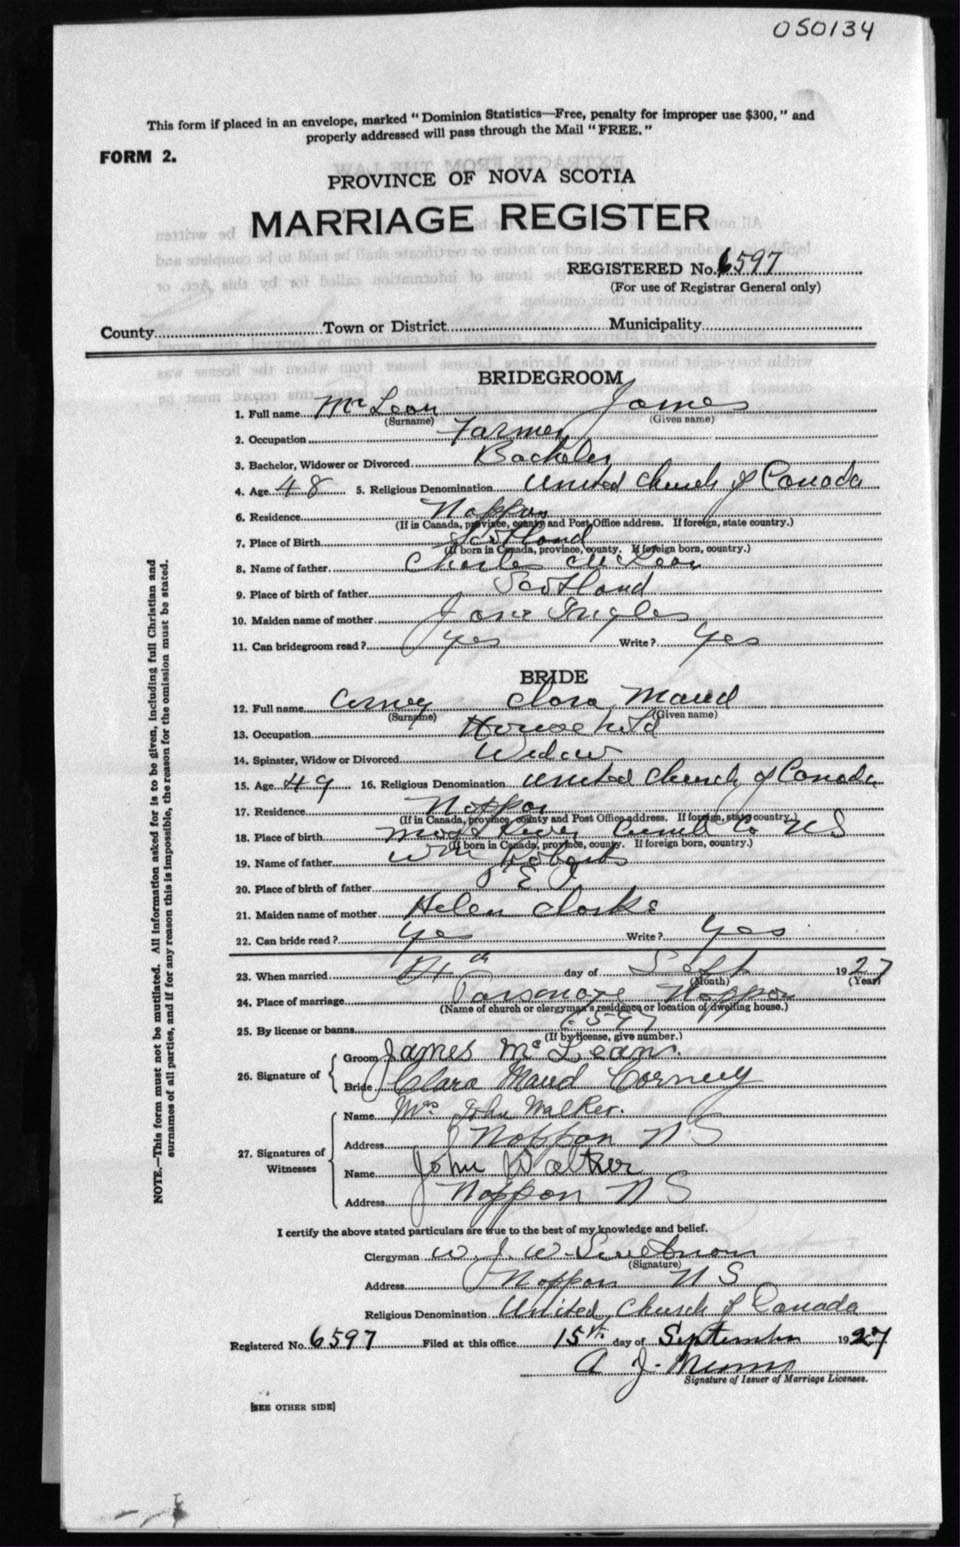 050134
This form if placed in an envelope, marked "Dominion Statistics—Free, penalty for improper use $300," and
properly addressed will pass through the Mail "FREE."
FORM 2.
PROVINCE OF NOVA SCOTIA
MARRIAGE REGISTER
REGISTERED No. 6597
(For use of Registrar General only)
County Town or District Municipality
BRIDEGROOM
1. Full name McLean James
(Surname) (Given name)
2. Occupation Farmer
3. Bachelor, Widower or Divorced Bachelor
4. Age 48 5. Religious Denomination United Church of Canada
6. Residence Nappan
(If in Canada, province, county and Post Office address. If foreign, state country.)
7. Place of Birth Scotland
(If born in Canada, province, county. If foreign born, country.)
8. Name of father Charles McLean
9. Place of birth of father Scotland
10. Maiden name of mother Jane Ingles
11. Can bridegroom read? yes Write? yes
BRIDE
12. Full name Corney Clara Maud
(Surname) (Given name)
13. Occupation Household
14. Spinster, Widow or Divorced Widow
15. Age 49 16. Religious Denomination United Church of Canada
17. Residence Nappan
(If in Canada, province, county and Post Office address. If foreign, state country.)
18. Place of birth River Cumb Co NS
(If born in Canada, province, county. If foreign born, country.)
19. Name of father Wm Roberts
20. Place of birth of father P E I
21. Maiden name of mother Helen Clarke
22. Can bride read? yes Write? yes
23. When married 14th day of Sept 1927
(Month) (Year)
24. Place of marriage Parsonage Nappan
(Name of church or clergyman's residence or location of dwelling house.)
25. By license or banns 6597
(If by license, give number.)
26. Signature of Groom James McLean.
Bride Clara Maud Corney
27. Signatures of Witnesses Name Mrs John Walker.
Address Nappan N S
Name John Walker
Address Nappan N S
I certify the above stated particulars are true to the best of my knowledge and belief.
Clergyman W. J. W. Swetnam
(Signature)
Address Nappan N S
Religious Denomination United Church of Canada
Registered No. 6597 Filed at this office 15th day of September 1927
A J.
Signature of Issuer of Marriage Licenses.
[SEE OTHER SIDE]
NOTE.—This form must not be mutilated. All information asked for is to be given, including full Christian and
surnames of all parties, and if for any reason this is impossible, the reason for the omission must be stated.